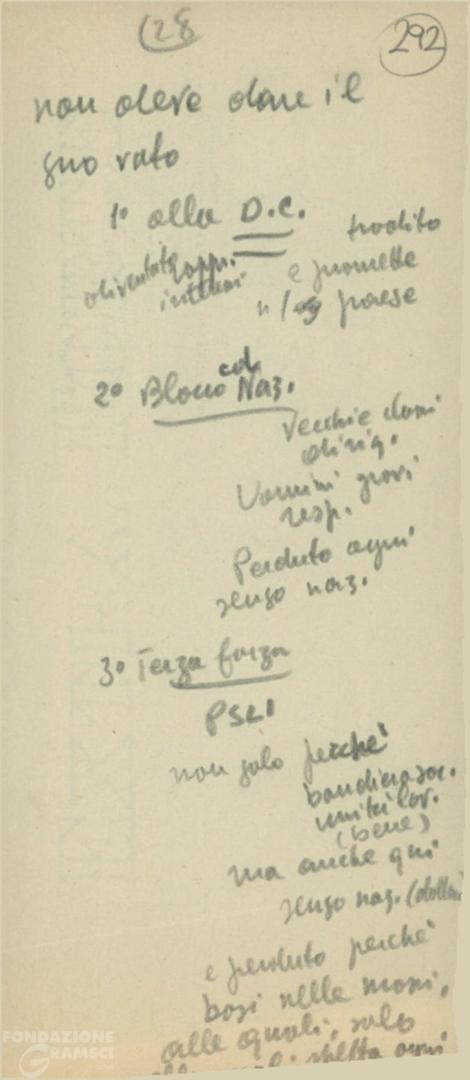 (28
292
non deve dare il
suo voto
1° alla D.C.
tradito
diventata rappr.
interessi
e promette
paese
2° Blocco cd Naz.
Vecchie classi
dirig.
Uomini gravi
resp.
Perduto ogni
senso naz.
3° Terza forza
PSLI
non solo perché
bandiera soc.
unità lav.
(bene)
ma anche qui
senso naz. (dollari
è perduto perché
basi nelle masse,
alle quali, solo
spetta ogni
FONDAZIONE
GRAMSCI